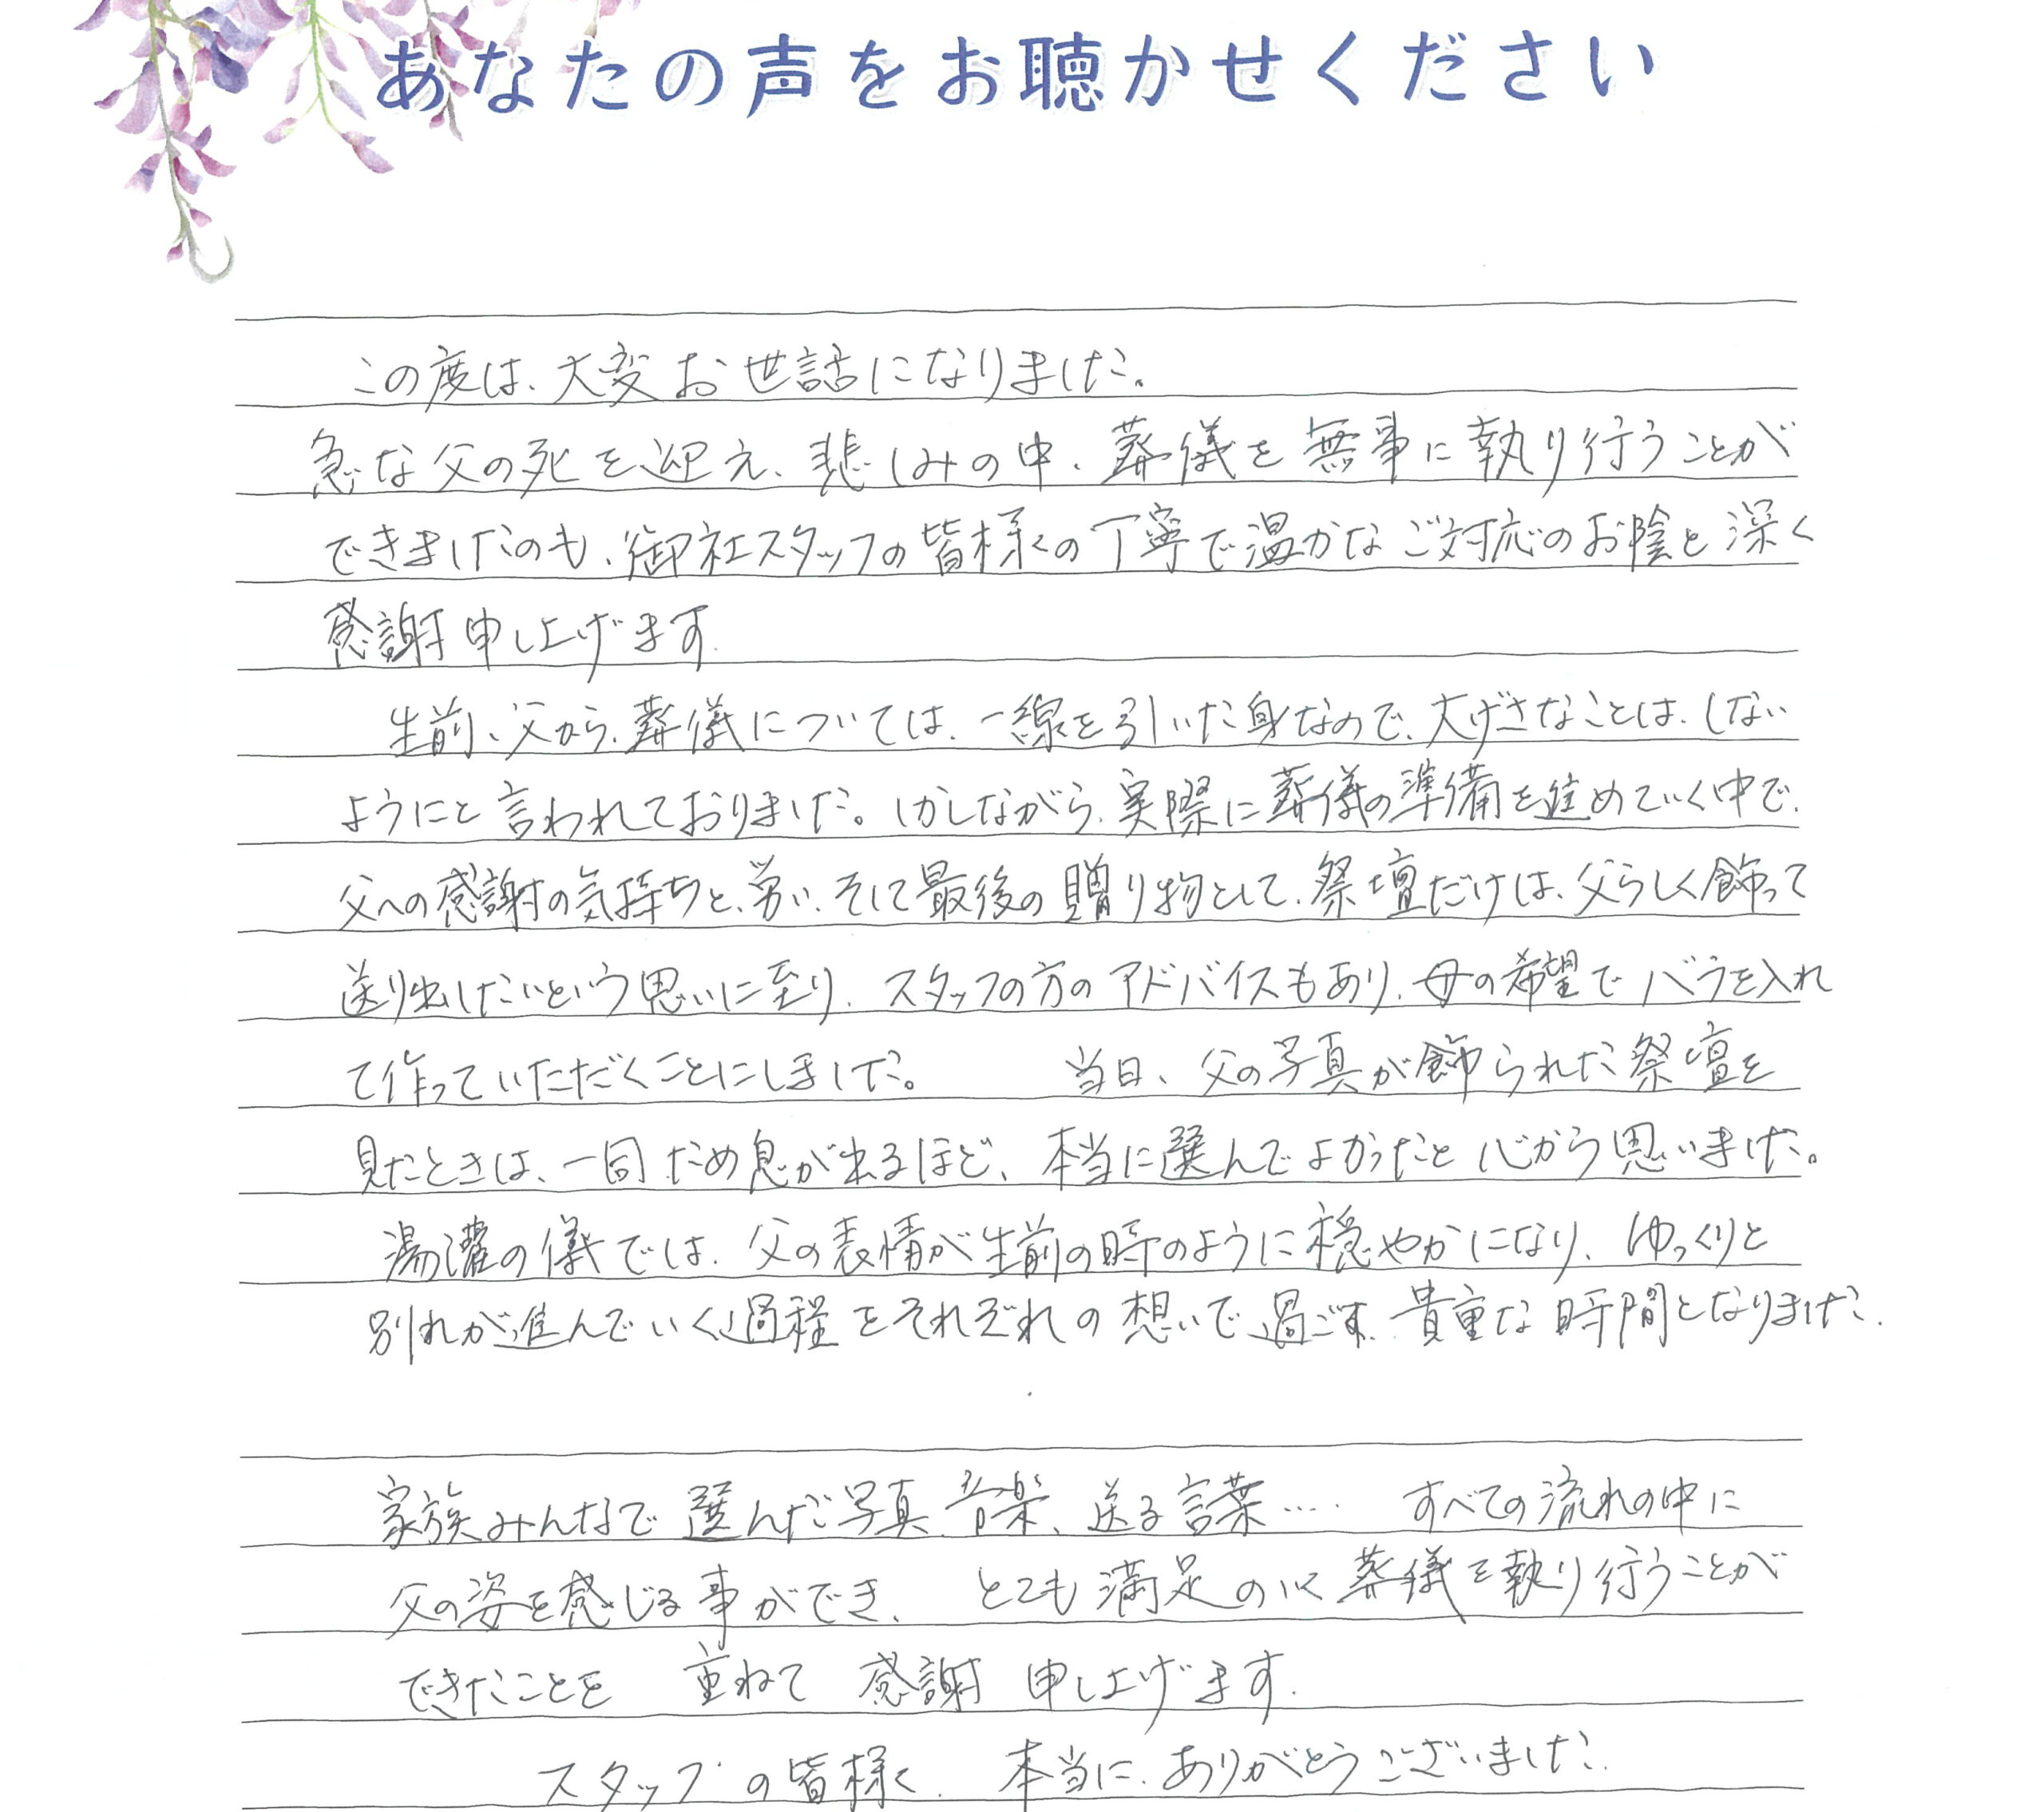 あなたの声をお聴かせください
この度は、大変お世話になりました。
急な父の死を迎え、悲しみの中、葬儀を無事に執り行うことが
できましたのも、御社スタッフの皆様の丁寧で温かなご対応のお陰と深く
感謝申し上げます.
生前、父から、葬儀については、一線を引いた身なので、大げさなことは、しない
ようにと言われておりました。しかしながら、実際に葬儀の準備を進めていく中で、
父への感謝の気持ちと、労い、そして最後の贈り物として、祭壇だけは、父らしく飾って
送り出したいという思いに至り、スタッフの方のアドバイスもあり、母の希望でバラを入れ
て作っていただくことにしました。 当日、父の写真が飾られた祭壇を
見たときは、一同ため息が出るほど、本当に選んでよかったと心から思いました。
湯灌の儀では、父の表情が生前の時のように穏やかになり、ゆっくりと
別れが進んでいく過程をそれぞれの想いで過ごす、貴重な時間となりました.
家族みんなで選んだ写真、音楽、送る言葉…. すべての流れの中に
父の姿を感じる事ができ、 とても満足のいく葬儀を執り行うことが
できたことを 重ねて 感謝 申し上げます.
スタッフの皆様、 本当に、ありがとうございました.